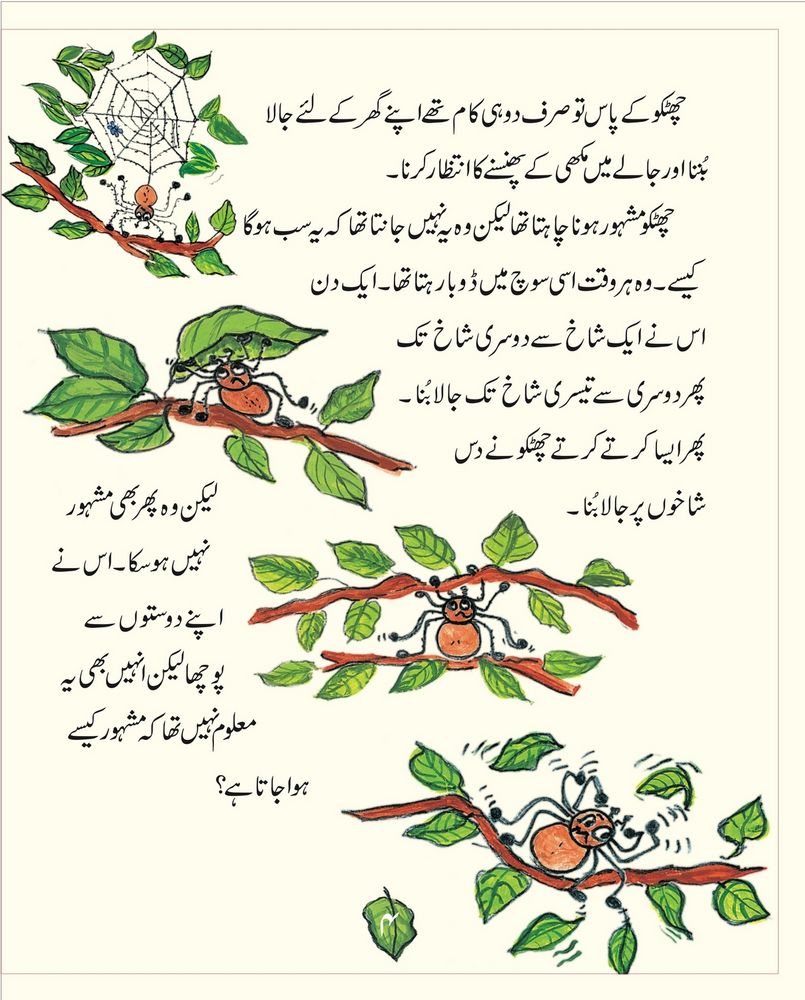 چھٹکو کے پاس تو صرف دو ہی کام تھے اپنے گھر کے لئے جالا
بُننا اور جالے میں مکھی کے پھنسنے کا انتظار کرنا۔
چھٹکو مشہور ہونا چاہتا تھا لیکن وہ یہ نہیں جانتا تھا کہ یہ سب ہوگا
کیسے۔ وہ ہر وقت اسی سوچ میں ڈوبا رہتا تھا۔ ایک دن
اس نے ایک شاخ سے دوسری شاخ تک
پھر دوسری سے تیسری شاخ تک جالا بُنا۔
پھر ایسا کرتے کرتے چھٹکو نے دس
شاخوں پر جالا بُنا۔
لیکن وہ پھر بھی مشہور
نہیں ہو سکا۔ اس نے
اپنے دوستوں سے
پوچھا لیکن انہیں بھی یہ
معلوم نہیں تھا کہ مشہور کیسے
ہوا جاتا ہے؟
۴